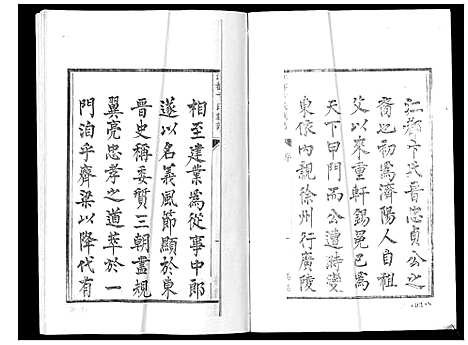 江都卞氏晉忠貞公之
裔也初爲濟陽人自祖
父以來重軒錫冕已爲
天下甲門而公遭時變
東依內親徐州行廣陵
相至建業爲從事中郎
遂以名義風節顯於東
晉史稱委質三朝盡規
翼亮忠孝之道萃於一
門泊乎齊梁以降代有